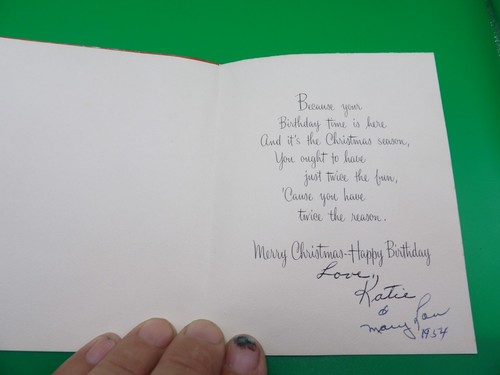 Because your
Birthday time is here
And it's the Christmas season,
You ought to have
just twice the fun,
'Cause you have
twice the reason.
Merry Christmas-Happy Birthday
Love,
Katie
&
Mary Lou
1954